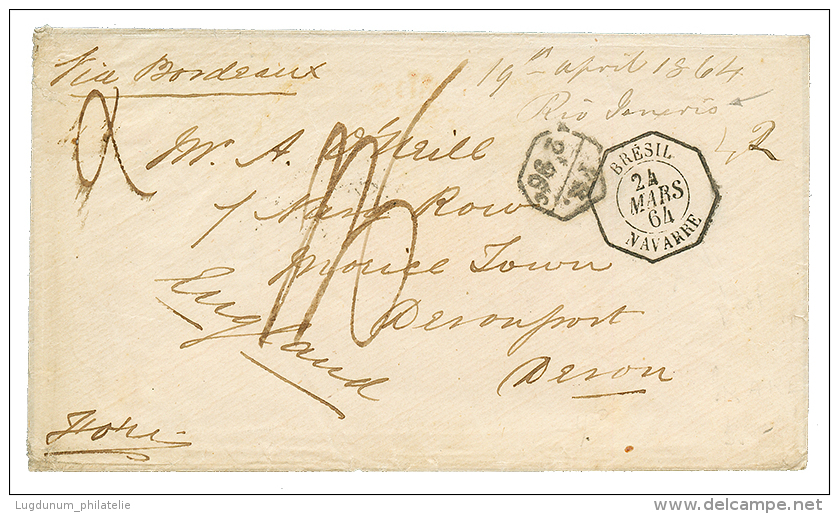 Via Bordeaux
19th april 1864
Rio Janerio
2
Mr. A. O'Neill
7 Navy Row
Morice Town
Devonport
Devon
England
BRÉSIL
24
MARS
64
NAVARRE
FR.
2F
90 6/10
Lugdunum_philatelie
delcampe.net